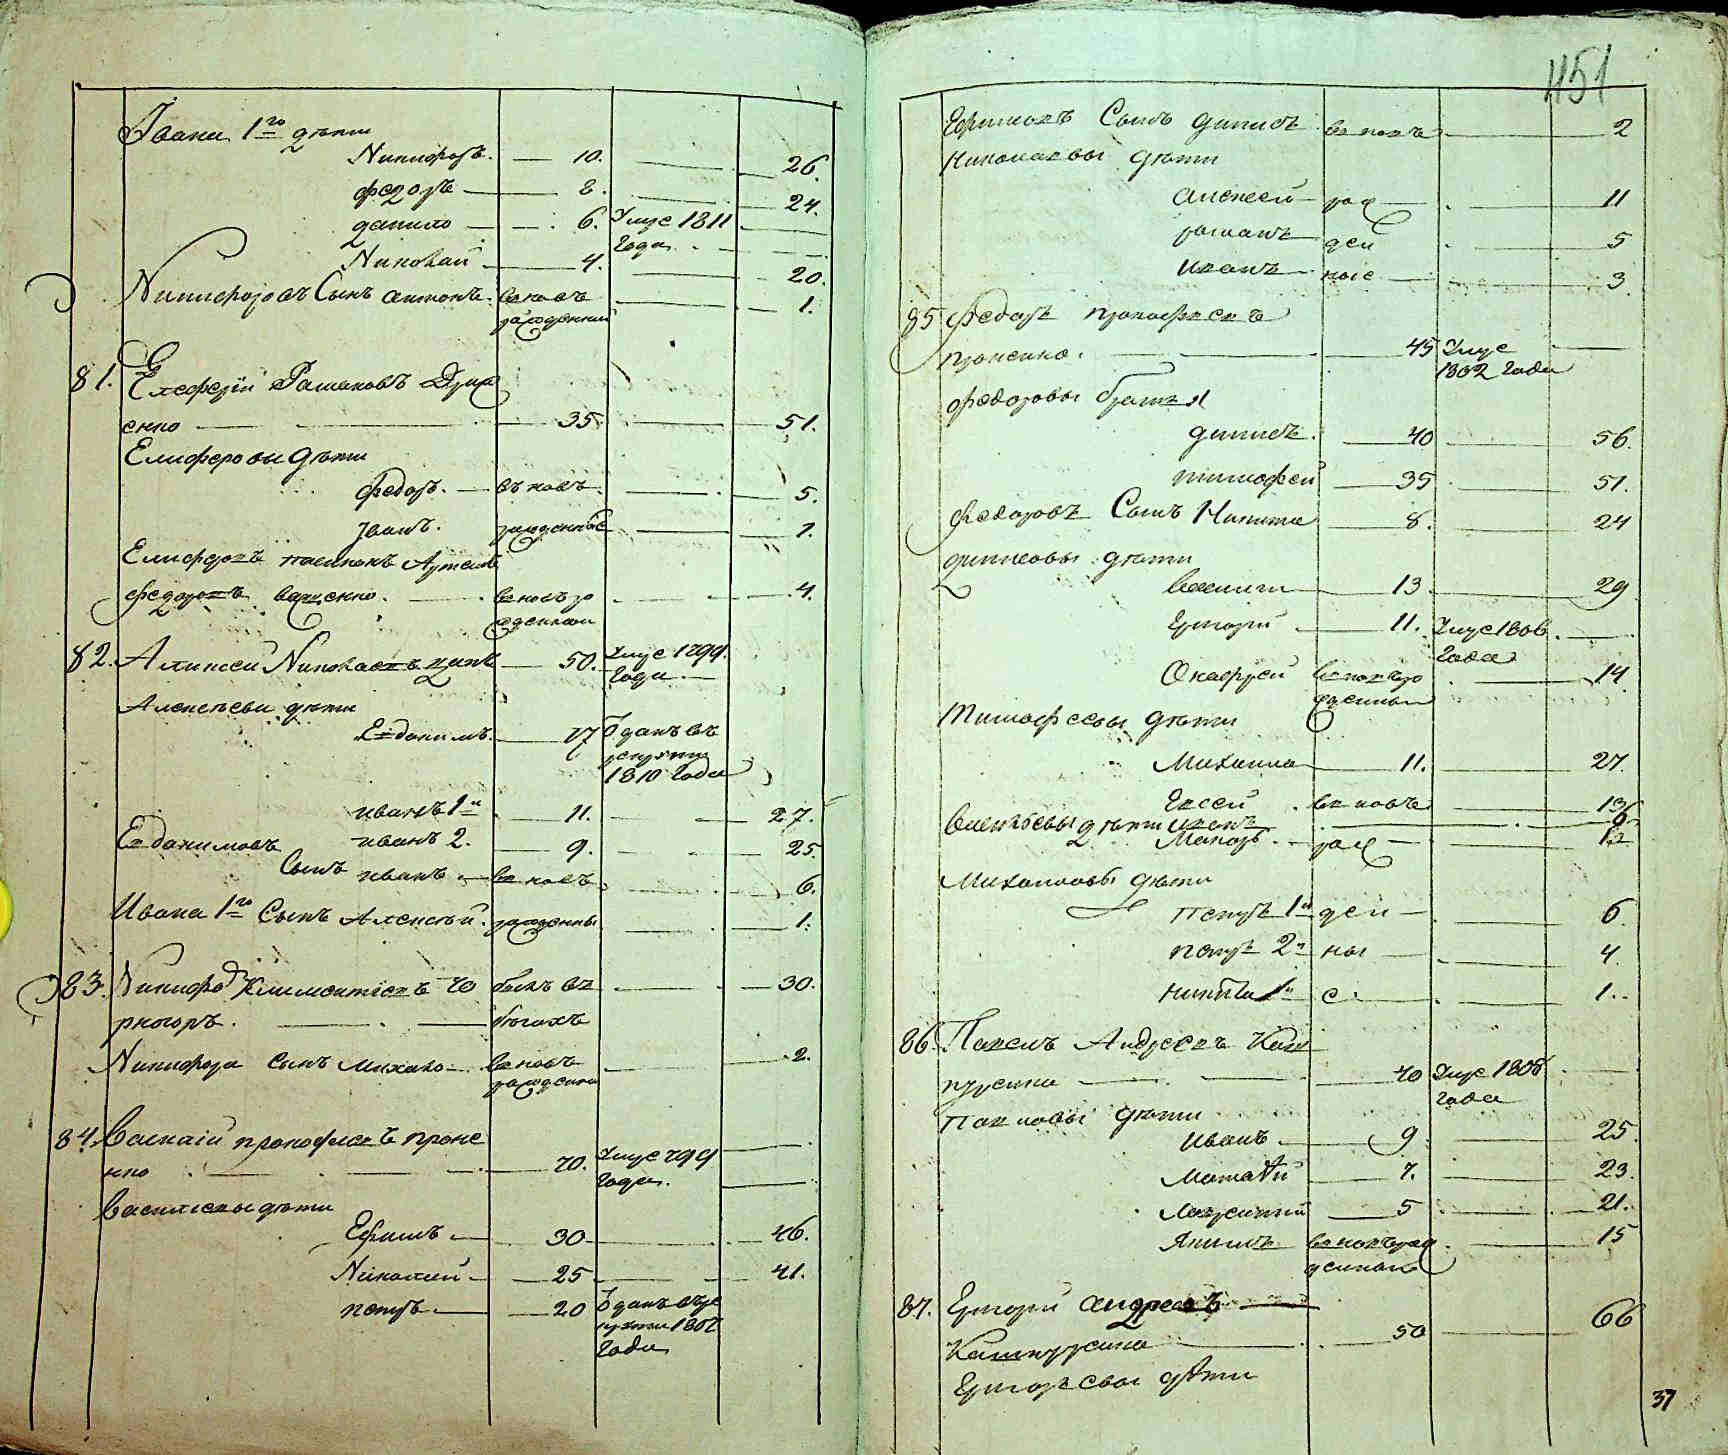 451
Ивана 1го дѣти
Никифоръ. 10. 26.
Федоръ 8. 24.
данило 6. Умре 1811 года
Николай 4. 20.
Никифоровъ Сынъ антонъ. вновь рожденный 1.
81. Елеферiй Романовъ
енко 35. 51.
Елиферовы дѣти
Федоръ. вновь 5.
Иванъ. рожденные 1.
Елиферовъ
Федоровъ вновь ро
жденный 4.
82. Алексей Николаевъ 50. Умре 1799. года
Алексеевы дѣти
Евдокимъ. 17 Отданъ въ рекруты 1810 года
иванъ 1й 11. 27.
Евдокимовъ иванъ 2. 9. 25.
Сынъ иванъ вновь 6.
Ивана 1го Сынъ Алексѣй. рожденны 1.
83. Никифоръ Климентiевъ Чо былъ въ 30.
рногоръ. бегахъ
Никифора сынъ Михайло вновь рожденны 2.
84. Василiй прокофьевъ проне
нко 70. Умре 799 года.
Васильевы дѣти
Ефимъ 30. 46.
Николай 25 41.
петръ 20 Отданъ въ ре
круты 1802 года
Ефимовъ Сынъ денисъ вновь 2
Николаевы дѣти
алексей рож 11
романъ ден 5
иванъ ные 3.
85 Федоръ прокофьевъ
проненко. 45 Умре 1802 года
Федоровы братья
денисъ. 40 56.
тимофей 35 51.
Федоровъ Сынъ Никита 8. 24
денисовы дѣти
василий 13. 29
Григорий 11. Умре 1806. года
вновь ро
жденны 14.
Тимофеевы дѣти
Михаила 11. 27.
Евсей вновь 13
Васильевы дѣти иванъ 6.
Макаръ. рож 12
Михайловы дѣти
петръ 1й ден 6.
петръ 2й ны 4.
никита 1й е. 1.
86. Павелъ Андреевъ Кон
70 Умре 1808 года
Павловы дѣти
иванъ 9. 25.
Матвѣй 7. 23.
Лаврентий 5 21.
Якимъ вновь рож
денный 15
87. Григорй андреевъ
50 66
Григорьевы дѣти
37